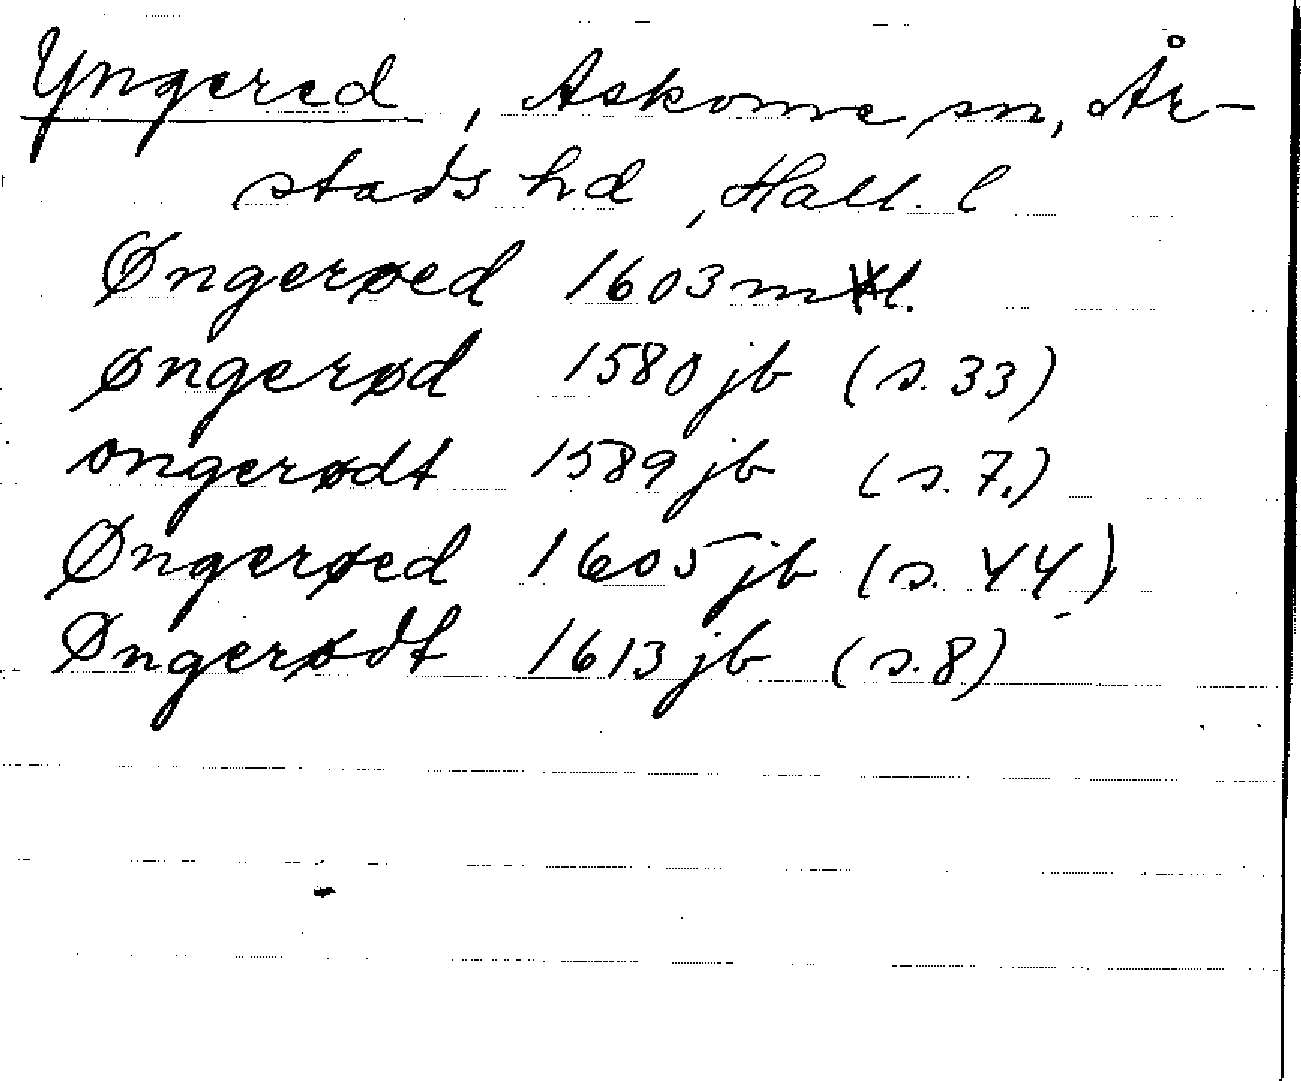 Yngered, Askome sn, År-
stads hd, Hall. l
Øngerøed 1603 mtl.
Øngerød 1580 jb (s. 33)
ongerødt 1589 jb (s. 7.)
Øngerøed 1605 jb (s. 44)
Øngerødt 1613 jb (s. 8)